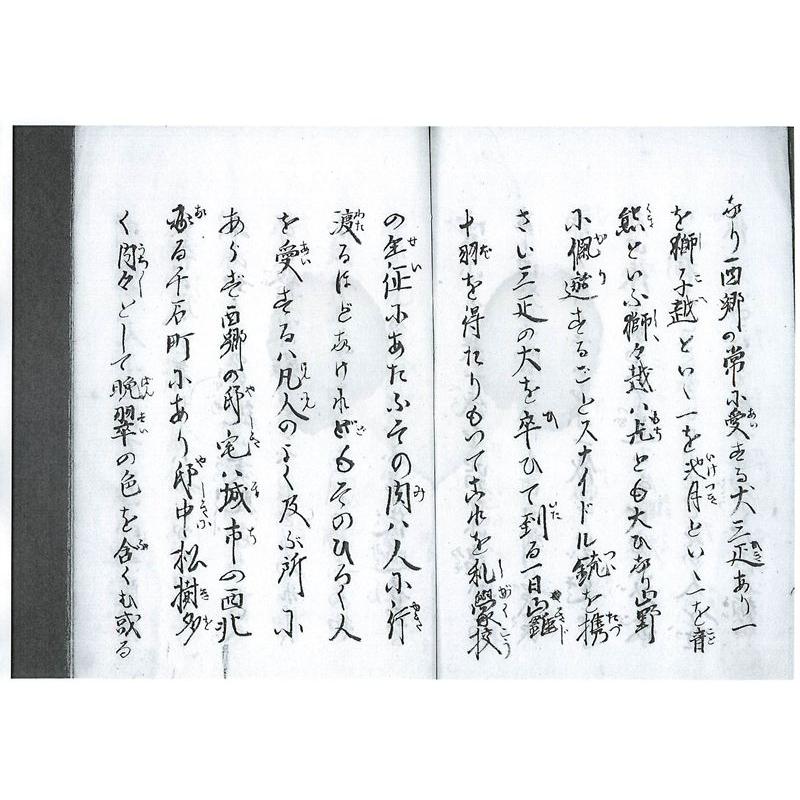 なり西郷の常に愛する犬三疋あり一
を獅子越といゝ一を池月といゝ一を
熊といふ獅々越は尤とも大ひなり山野
に佩遊するごとスナイドル銃を携
さい三疋の犬を卒ひて到る一日山雞
十羽を得たりもつてこれを私學校
の生徒にあたふその肉は人に行
渡るほどなけれどもそのひろく人
を愛するは凡人のよく及ぶ所に
あらず西郷の邸宅は城市の西北
千石町にあり邸中松樹多
く鬱々として晩翠の色を含くむ或る